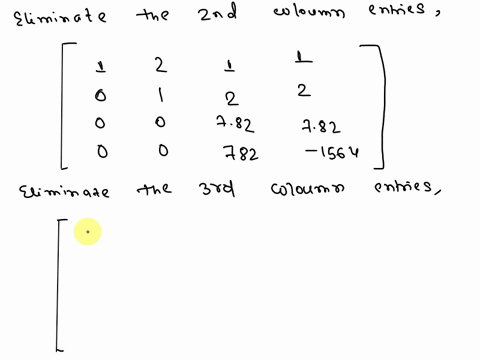 Eliminate the 2nd coloumn entries,
1 2 1 1
0 1 2 2
0 0 7.82 7.82
0 0 782 -1564
Eliminate the 3rd coloumn entries,